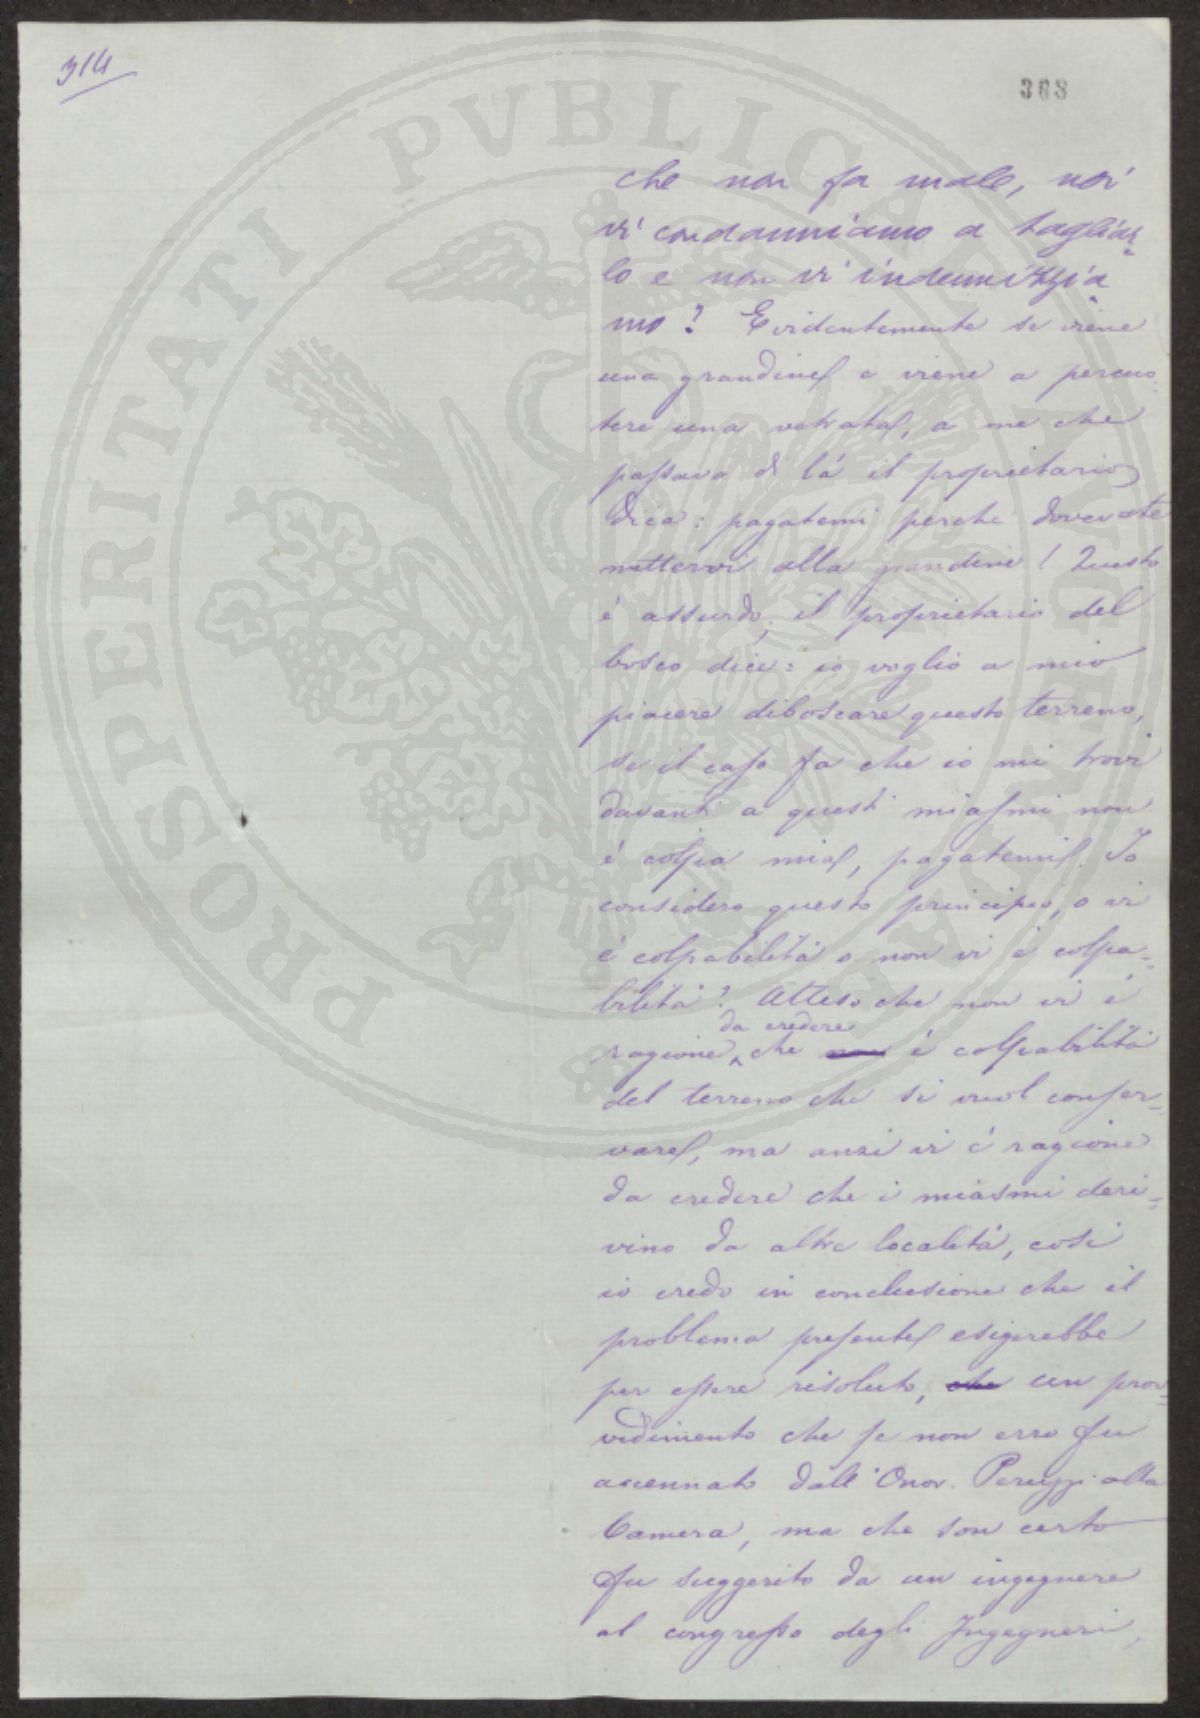 314
368
PROSPERITATI PVBLICAE AVGENDAE
che non fa male, noi
vi condanniamo a tagliar-
lo e non vi indennizzia
mo? Evidentemente se viene
una grandine e viene a percuo-
tere una vetrata, a me che
passava di là il proprietario
dica: pagatemi perchè dovevate
mettervi alla grandine! Questo
è assurdo; il proprietario del
bosco dice: io voglio a mio
piacere diboscare questo terreno,
se il caso fa che io mi trovi
davanti a questi miasmi non
è colpa mia, pagatemi. Io
considero questo principio, o vi
è colpabilità o non vi è colpa-
bilità? Atteso che non vi è
da credere
ragione che non è colpabilità
del terreno che si vuol conser-
vare, ma anzi vi è ragione
da credere che i miasmi deri-
vino da altre località, così
io credo in conclusione che il
problema presente esigerebbe
per essere risoluto, che un prov-
vedimento che se non erro fu
accennato dall'Onor. Peruzzi alla
Camera, ma che son certo
fu suggerito da un ingegnere
al congresso degli Ingegneri,